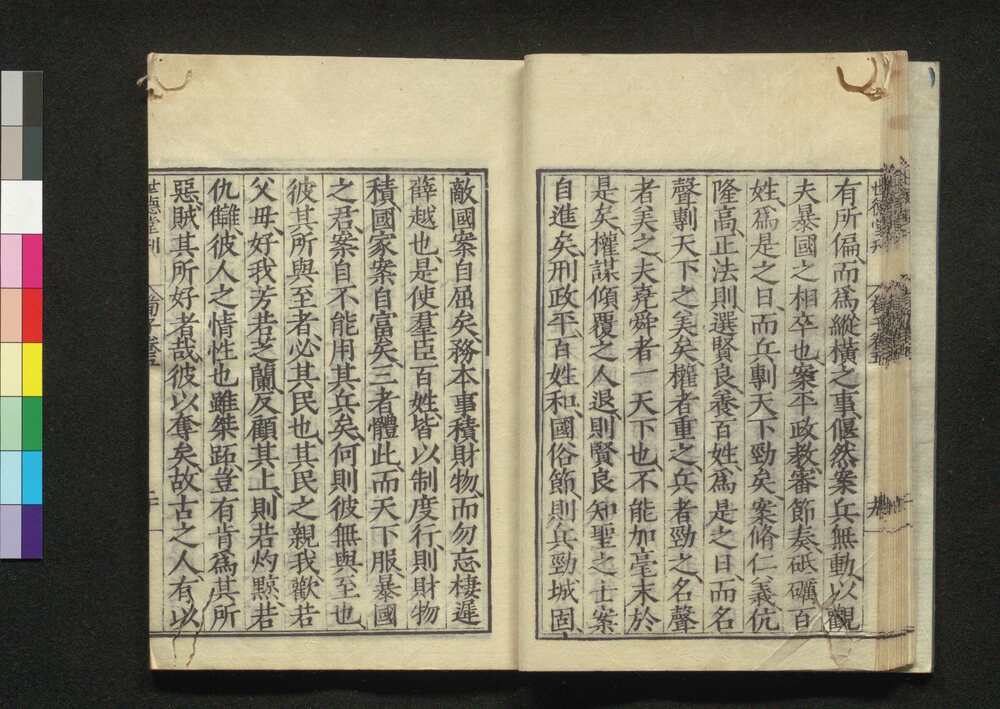 有所偏而爲縱橫之事偃然案兵無動以觀
夫暴國之相卒也案平政教審節奏砥礪百
姓爲是之日而兵剸天下勁矣案脩仁義伉
隆高正法則選賢良養百姓爲是之日而名
聲剸天下之美矣權者重之兵者勁之名聲
者美之夫堯舜者一天下也不能加毫末於
是矣權謀傾覆之人退則賢良知聖之士案
自進矣刑政平百姓和國俗節則兵勁城固
敵國案自屈矣務本事積財物而勿忘棲遲
薛越也是使羣臣百姓皆以制度行則財物
積國家案自富矣三者體此而天下服暴國
之君案自不能用其兵矣何則彼無與至也
彼其所與至者必其民也其民之親我歡若
父母好我芳若芝蘭反顧其上則若灼黥若
仇讎彼人之情性也雖桀跖豈有肯爲其所
惡賊其所好者哉彼以奪矣故古之人有以
世德堂刊
荀子卷五